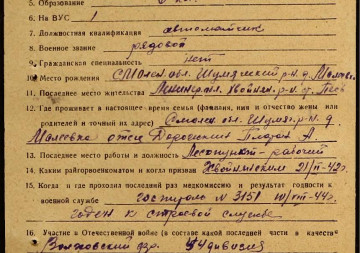 5. Образование
6. На ВУС 1
7. Должностная квалификация автоматчик
8. Военное звание рядовой
9. Гражданская специальность нет
10. Место рождения Смолен. обл. Шумячский р-н. д.
11. Последнее место жительства Ленингр. обл.
12. Где проживает в настоящее время семья (фамилия, имя и отчество жены или
родителя и точный их адрес) Смолен. обл. Шумяч. р-н. д.
Малеевка отец А.
13. Последнее место работы и должность рабочий
14. Каким райгорвоенкоматом и когда призван 42г
15. Когда и где проходил последний раз медкомиссию и результат годности к
военной службе госпиталь N 3151 42г
годен к строевой службе
16. Участие в Отечественной войне (в составе какой последней части и в качестве
Волховский фр. 94 дивизия